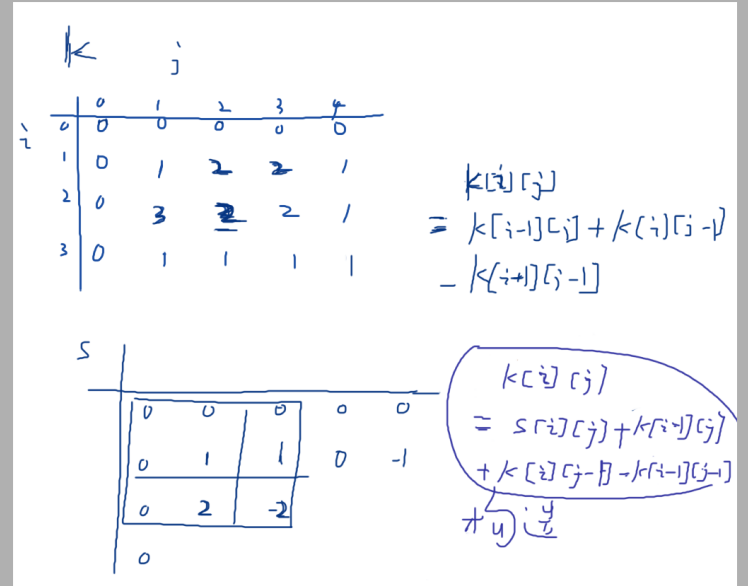 k
j
0 1 2 3 4
i 0 0 0 0 0 0
1 0 1 2 2 1
2 0 3 2 2 1
3 0 1 1 1 1
k[i][j]
= k[i-1][j] + k[i][j-1]
- k[i+1][j-1]
S
0 0 0 0 0
0 1 1 0 -1
0 2 -2
0
k[i][j]
= s[i][j] + k[i-1][j]
+ k[i][j-1] - k[i-1][j-1]